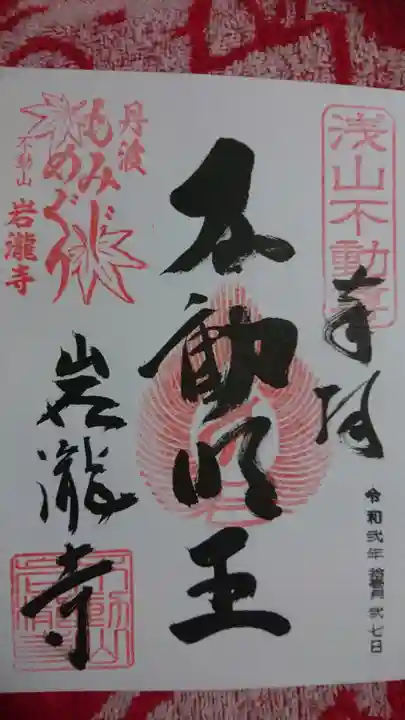 浅山不動尊
奉拝
令和弐年 拾壱月 弐七日
不動明王
丹波
もみじめぐり
不動山 岩瀧寺
岩瀧寺